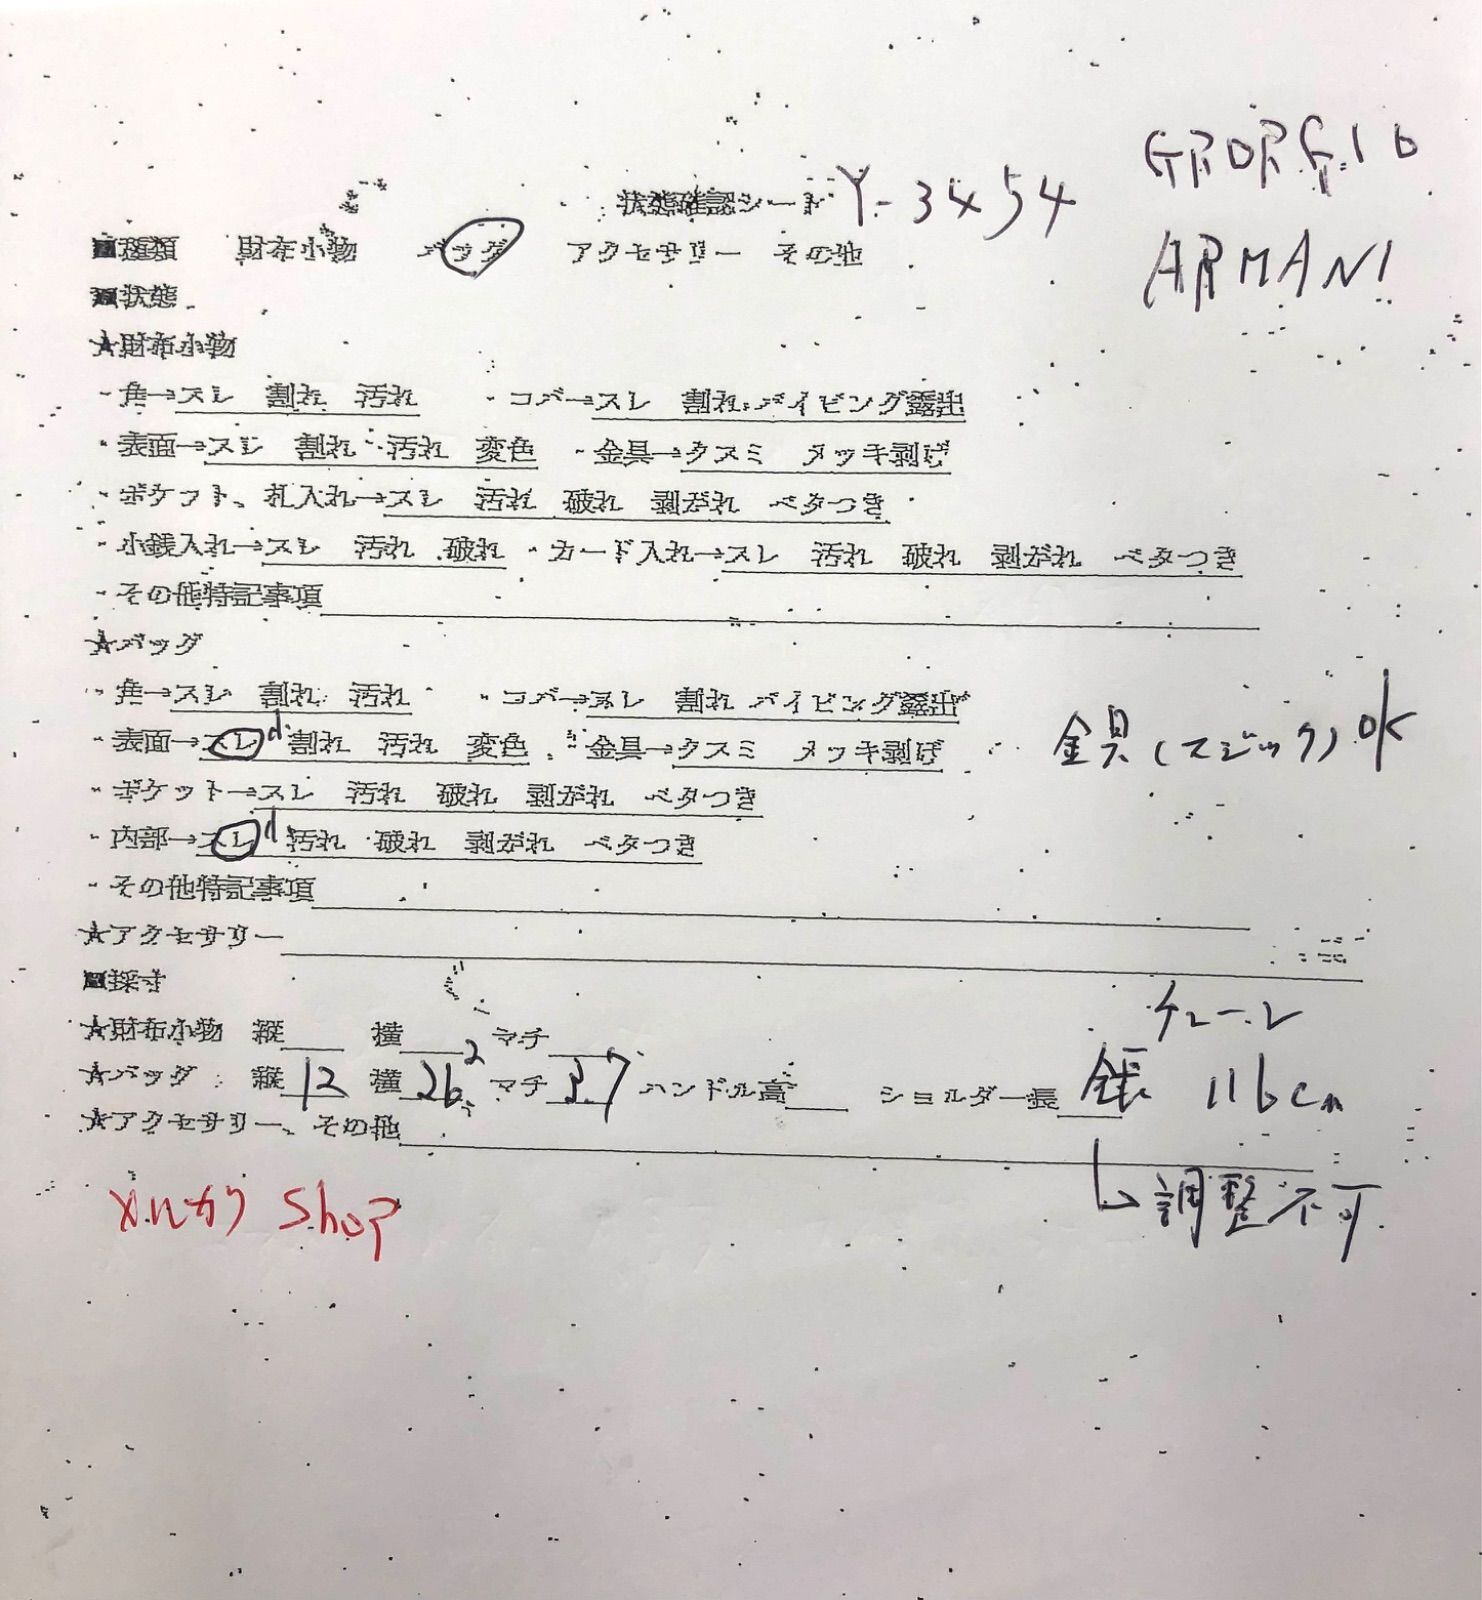 GIORGIO
ARMANI
状態確認シート Y-3454
■種類 財布小物 バッグ アクセサリー その他
■状態
★財布小物
・角→スレ 割れ 汚れ ・コバ→スレ 割れ パイピング露出
・表面→スレ 割れ 汚れ 変色 ・金具→クスミ メッキ剥げ
・ポケット、札入れ→スレ 汚れ 破れ 剥がれ ベタつき
・小銭入れ→スレ 汚れ 破れ ・カード入れ→スレ 汚れ 破れ 剥がれ ベタつき
・その他特記事項
★バッグ
・角→スレ 割れ 汚れ ・コバ→スレ 割れ パイピング露出
・表面→スレ 割れ 汚れ 変色 ・金具→クスミ メッキ剥げ 金具 OK
・ポケット→スレ 汚れ 破れ 剥がれ ベタつき
・内部→スレ 汚れ 破れ 剥がれ ベタつき
・その他特記事項
★アクセサリー
■採寸
★財布小物 縦 横 マチ
★バッグ 縦 12 横 26 マチ ハンドル高 ショルダー長 116cm
★アクセサリー、その他
調整不可
メルカリ Shop